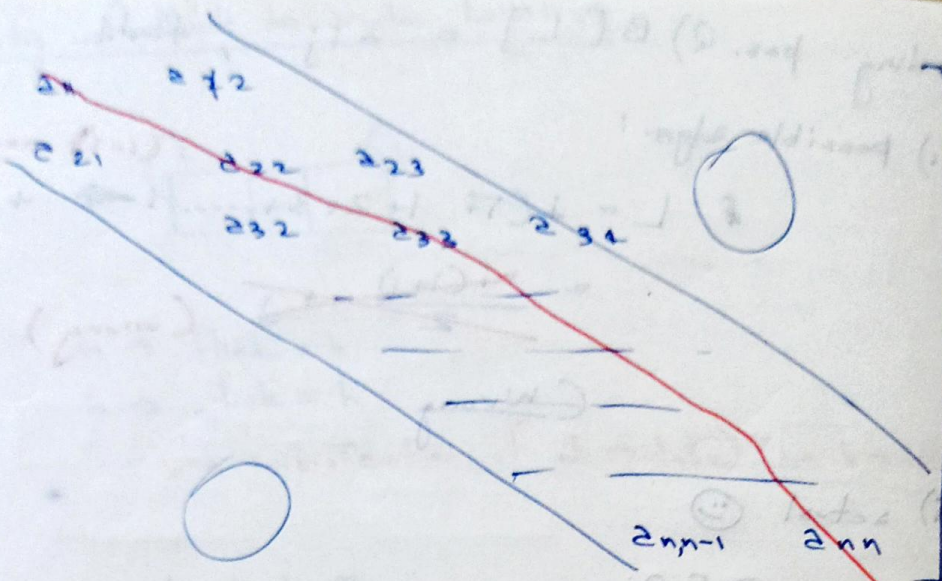 a11 a12
a21 a22 a23
a32 a33 a34
0
0
an,n-1 ann